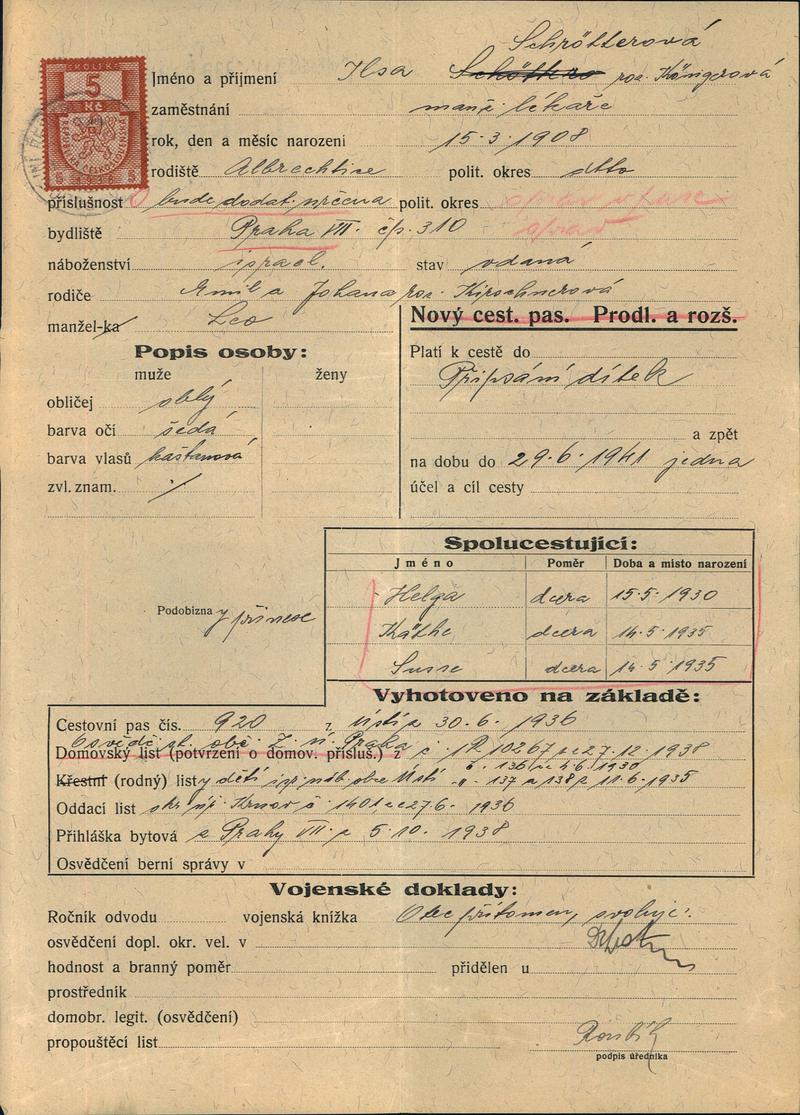 KOLEK
5
Kč
REPUBLIKA ČESKOSLOVENSKÁ
Schrötterová
Jméno a příjmení Ilsa roz. Königerová
zaměstnání manž. lékaře
rok, den a měsíc narození 15·3·1908
rodiště Albrechtice polit. okres dtto
příslušnost bude dodat. určena polit. okres
bydliště Praha VII. čp. 310
náboženství israel. stav vdaná
rodiče Emil a Johana roz. Kirschnerová
manžel-ka Leo
Nový cest. pas. Prodl. a rozš.
Popis osoby:
muže ženy
obličej oblý
barva očí šedá
barva vlasů kaštanová
zvl. znam. /
Platí k cestě do
Připsání dítek
a zpět
na dobu do 29·6·1941 jedna
účel a cíl cesty
Spolucestující:
Jméno Poměr Doba a místo narození
Helga dcera 15·5·1930
Käthe dcera 14·5·1935
Susse dcera 14·5·1935
Podobizna přinese
Vyhotoveno na základě:
Cestovní pas čís. 920 z Ústí 30·6·1936
Osvědč. st. obč. Z. ú. Praha
Domovský list (potvrzení o domov. přísluš.) z č 10267 27·12·1938
č. 136 4·6·1930
Křestní (rodný) list dětí isr. náb. obce Ústí 137 a 138 11·6·1935
Oddací list Krnov č 1401 27·6·1936
Přihláška bytová z Prahy VII z 5·10·1938
Osvědčení berní správy v
Vojenské doklady:
Ročník odvodu vojenská knížka Otec přítomen, svoluje:
osvědčení dopl. okr. vel. v
hodnost a branný poměr přidělen u
prostředník
domobr. legit. (osvědčení)
propouštěcí list
podpis úředníka